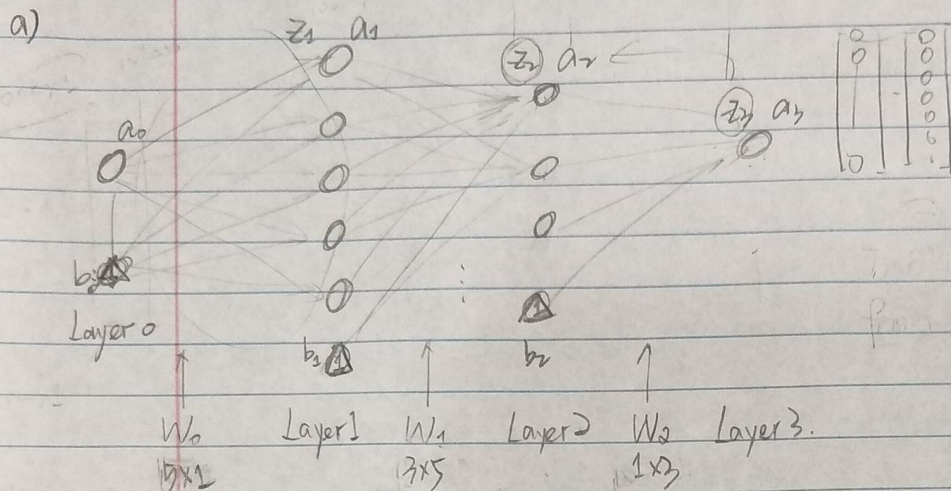 a)
z₁ a₁
z₂ a₂
z₃ a₃
a₀
b₀
Layer 0
b₁ 1
b₂ 1
W₀ Layer 1 W₁ Layer 2 W₂ Layer 3.
5×1 3×5 1×3